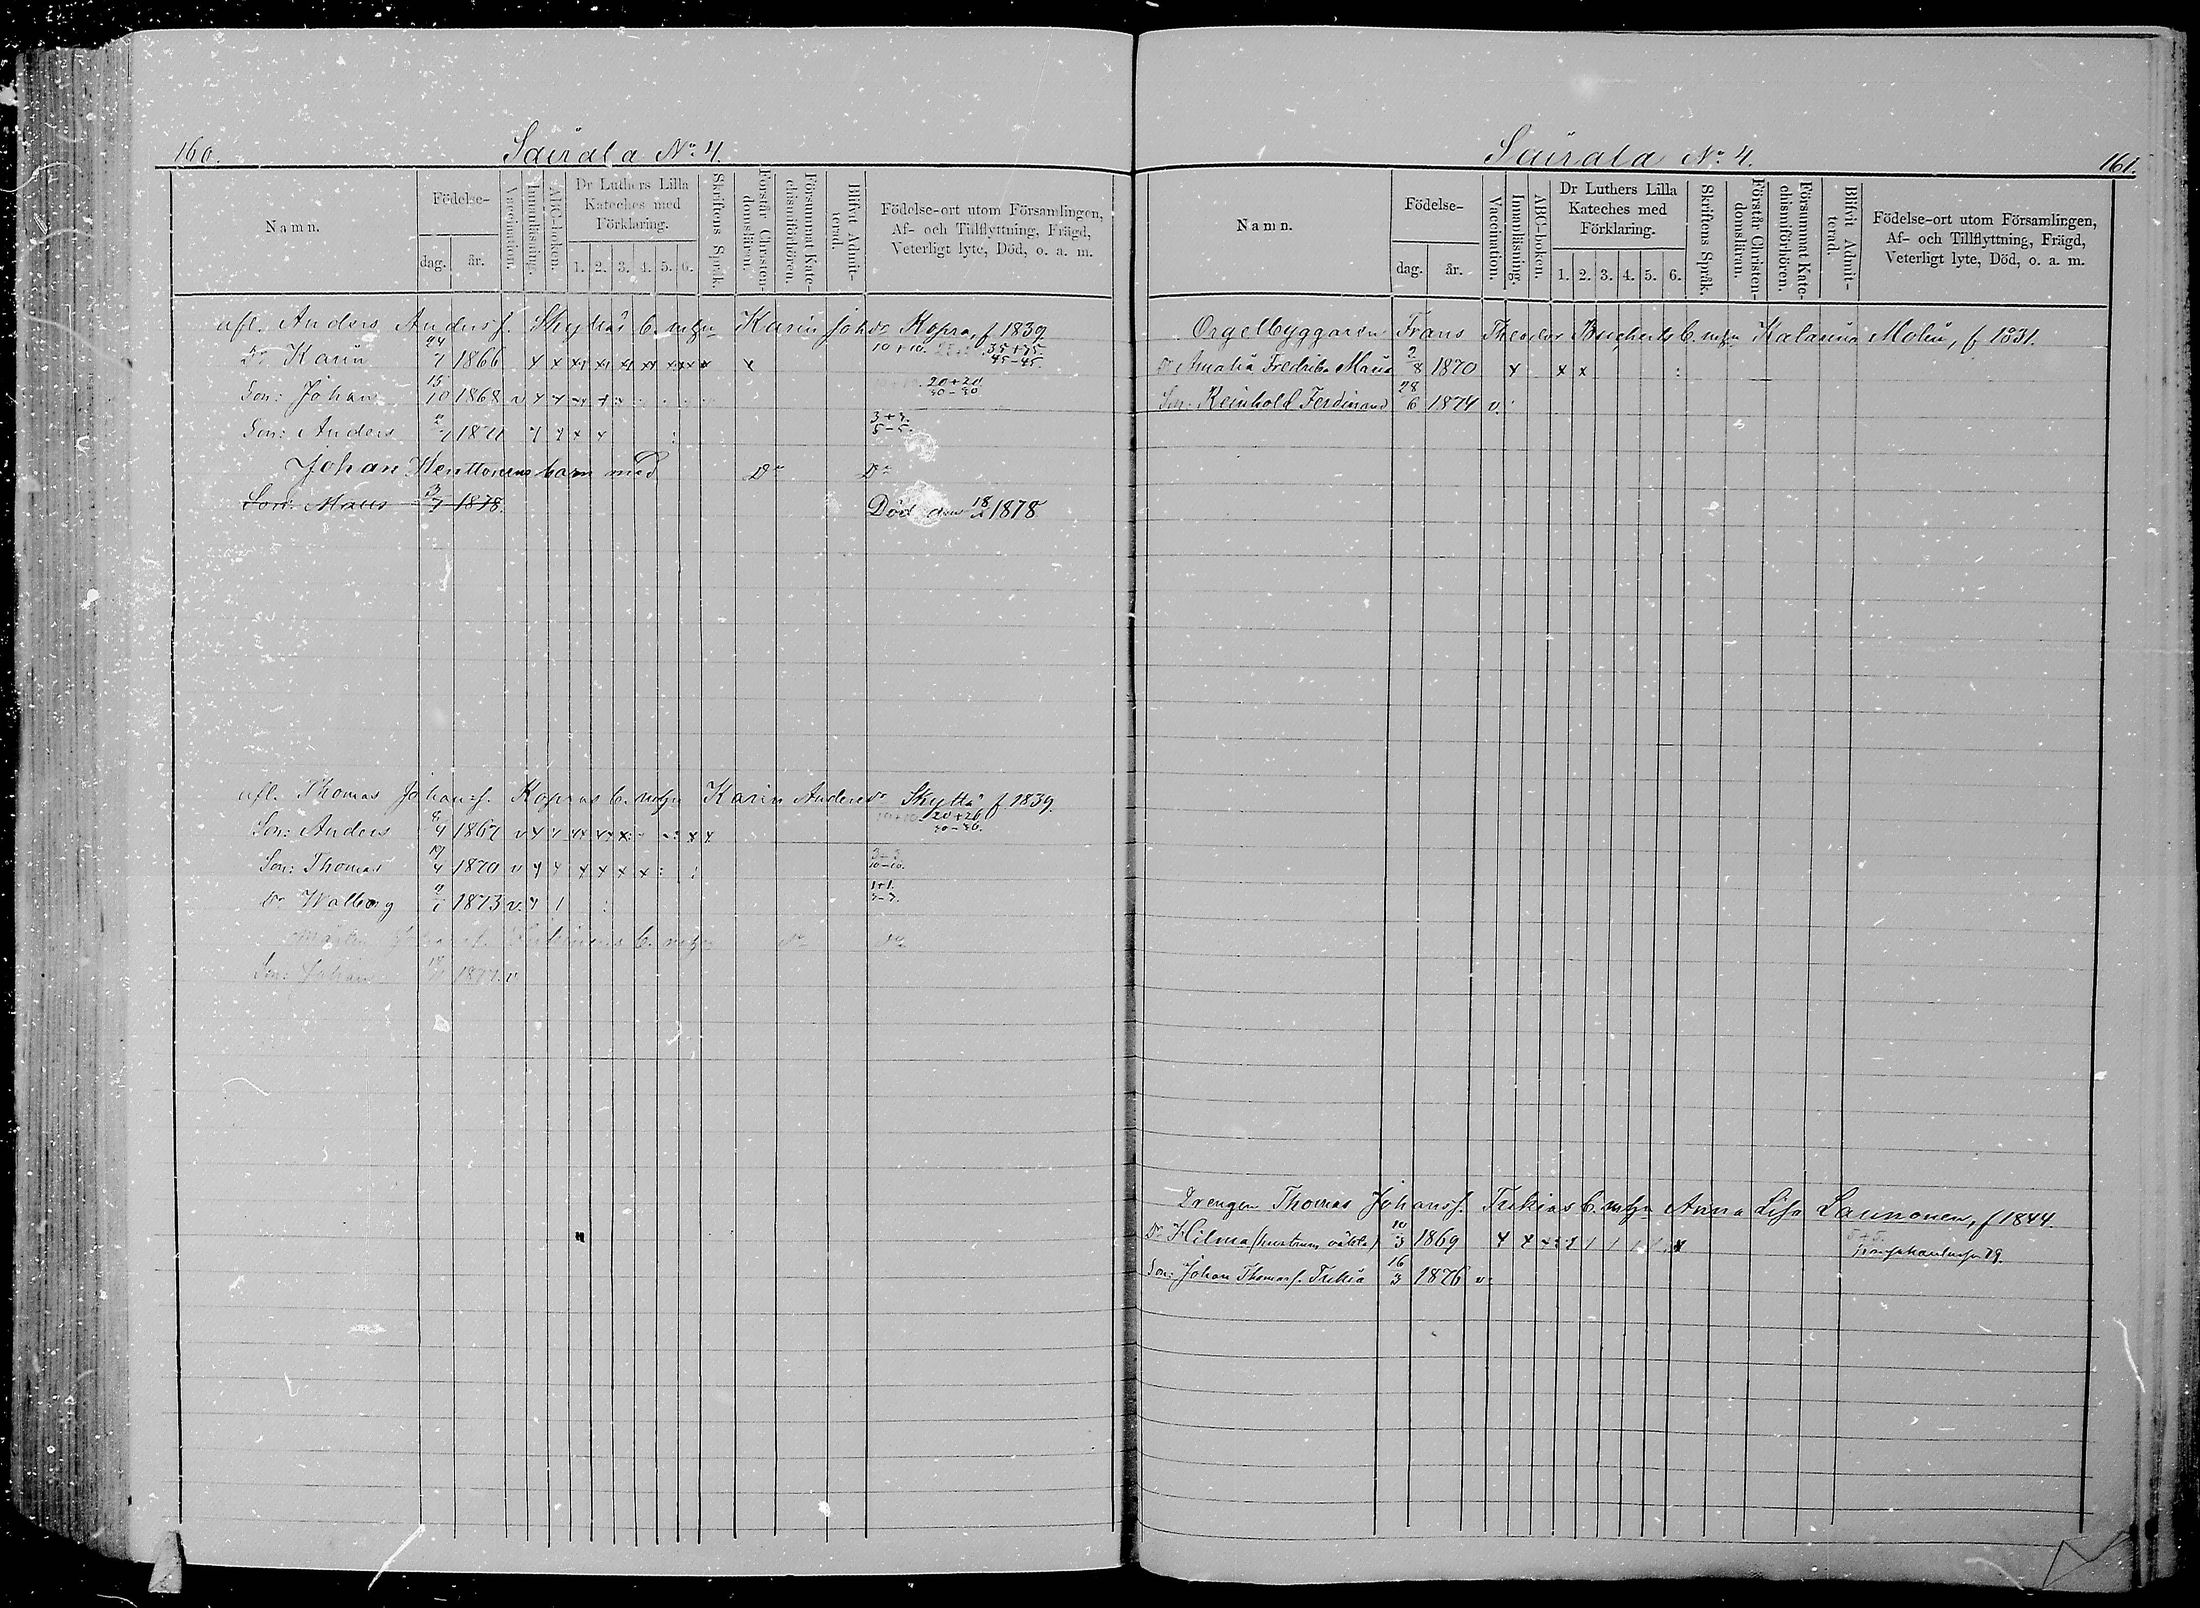 160.
Säirala No 4.
Namn.
Födelse-
dag.
år.
Vaccination.
Innanläsning.
ABC-boken.
Dr Luthers Lilla
Kateches med
Förklaring.
1. 2. 3. 4. 5. 6.
Skriftens Språk.
Förstår Christen-
domsläran.
Försummat Kate-
chismiförhören.
Blifvit Admit-
terad.
Födelse-ort utom Församlingen,
Af- och Tillflyttning, Frägd,
Veterligt lyte, Död, o. a. m.
afl. Anders Andersf. Skyttäs b. m. Karin Johdr Kopra, f 1839
Dr Karin 24/7 1866 10+10. 35+35 45-45.
Son: Johan 13/10 1868 v 20+20 30-30
Son: Anders 1871 3+3. 5-5.
Johan Henttonens barn med Do Do
Son: Matts 1878. Död den 18 1878
afl. Thomas Johansf. Kopras b. m. Karin Andersdr Skyttä, f 1839.
Son: Anders 8/4 1867 v 20+20 30-30.
Son: Thomas 4 1870 v 3+3 10-10.
Dr Walborg 1873 v. 1+1. 3-3.
Son: Johan 1877. v
Säirala No 4.
161.
Namn.
Födelse-
dag.
år.
Vaccination.
Innanläsning.
ABC-boken.
Dr Luthers Lilla
Kateches med
Förklaring.
1. 2. 3. 4. 5. 6.
Skriftens Språk.
Förstår Christen-
domsläran.
Försummat Kate-
chismiförhören.
Blifvit Admit-
terad.
Födelse-ort utom Församlingen,
Af- och Tillflyttning, Frägd,
Veterligt lyte, Död, o. a. m.
Orgelbyggaren Frans Theodor Bucherts b. m. Katarina Molin, f 1831.
Dr Amalia Fredrika Maria 2/8 1870
Son: Reinhold Ferdinand 28/6 1874 v.
Drengen Thomas Johansf. Tukias b. m. Anna Lisa Launonen, f 1844.
Dr Hilma (hustruns oäkta) 10/3 1869 5+5.
Son: Johan Thomasf. Tukia 16/3 1876 v.